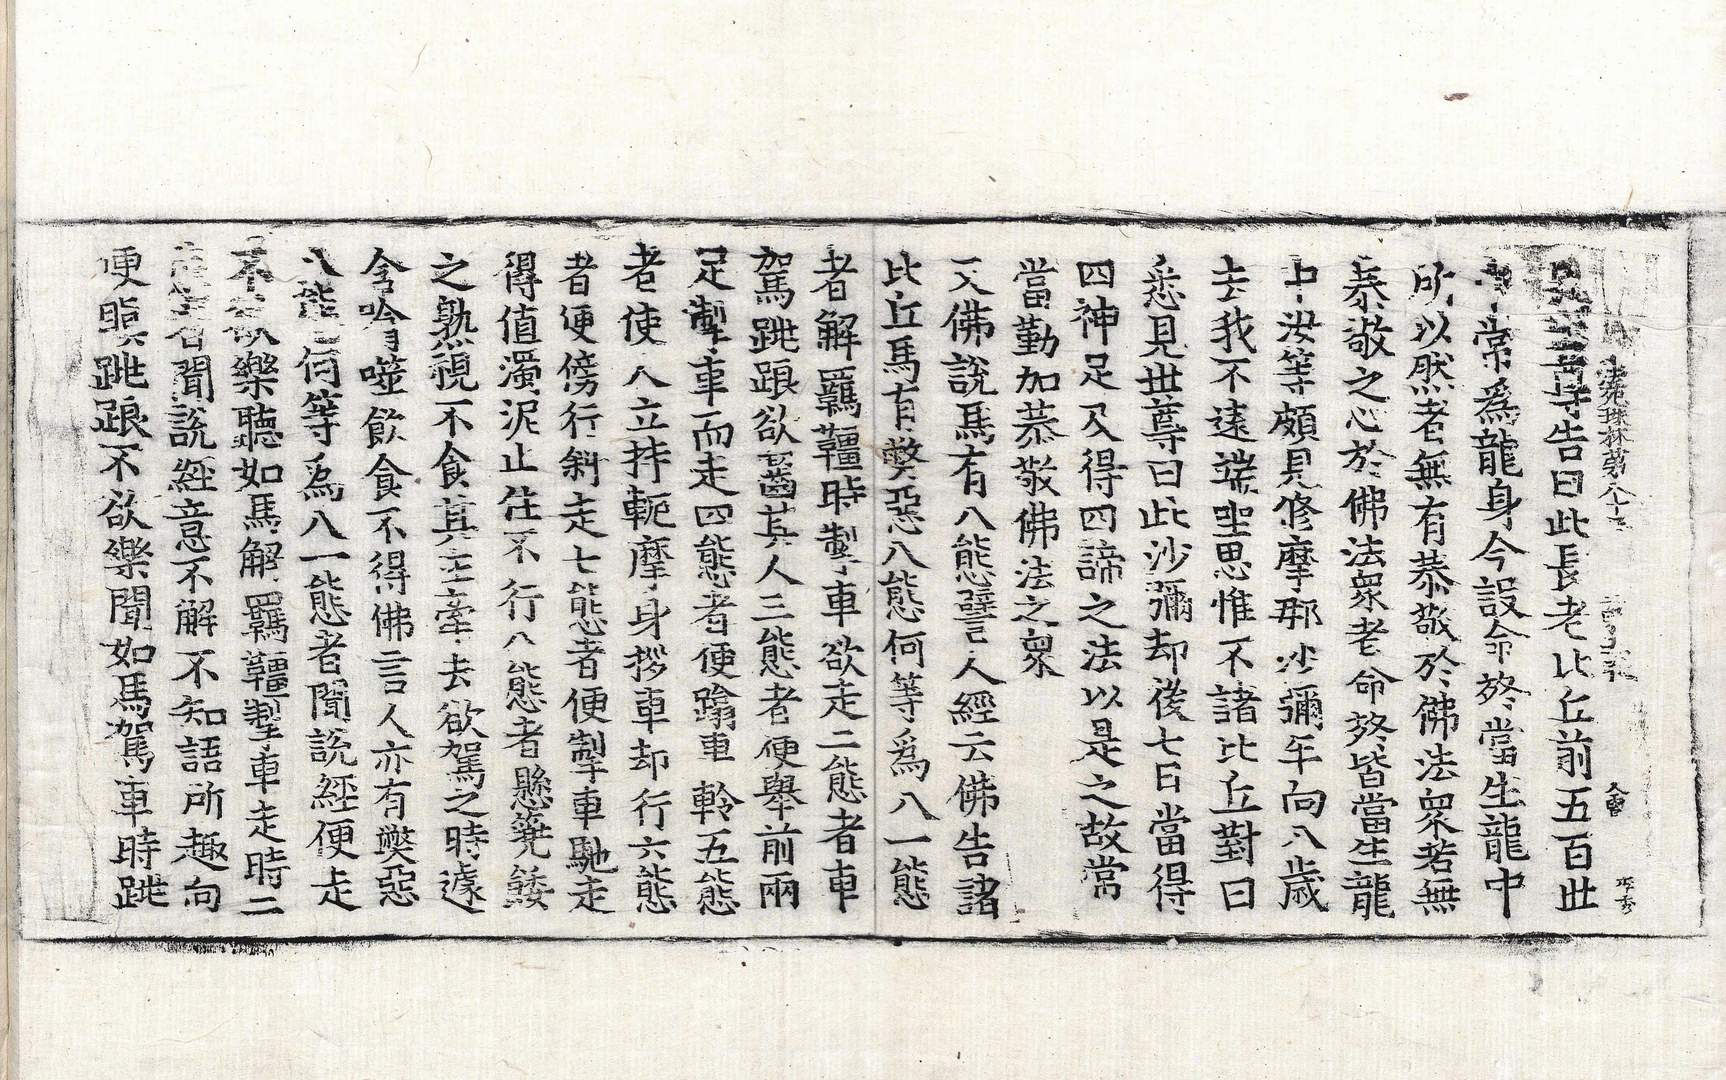 告曰此長老比丘前五百世
中常爲龍身今設命終當生龍中
所以然者無有恭敬於佛法衆若無
恭敬之心於佛法衆老命終皆當生龍
中汝等頗見修摩那沙彌年向八歲
去我不遠端坐思惟不諸比丘對曰
悉見世尊曰此沙彌却後七日當得
四神足及得四諦之法以是之故當
當勤加恭敬佛法之衆
又佛說馬有八態譬人經云佛告諸
比丘馬有獘惡八態何等爲八一態
者解羈韁時掣車欲走二態者車
駕跳踉欲齧其人三態者便舉前兩
足掣車而走四態者便蹹車軨五態
者使人立持軛摩身拶車却行六態
者便傍行斜走七態者便掣車馳走
得値濁泥止住不行八態者懸篼餧
之熟視不食其主牽去欲駕之時遽
含噬飮食不得佛言人亦有獘惡
八態何等爲八一態者聞說經便走
不欲樂聽如馬解羈韁掣車走時二
態者聞說經意不解不知語所趣向
便瞋跳踉不欲樂聞如馬駕車時跳